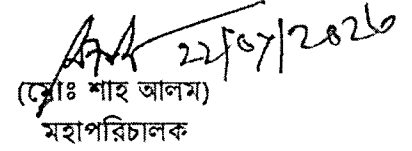 22/07/2026
(মোঃ শাহ আলম)
মহাপরিচালক